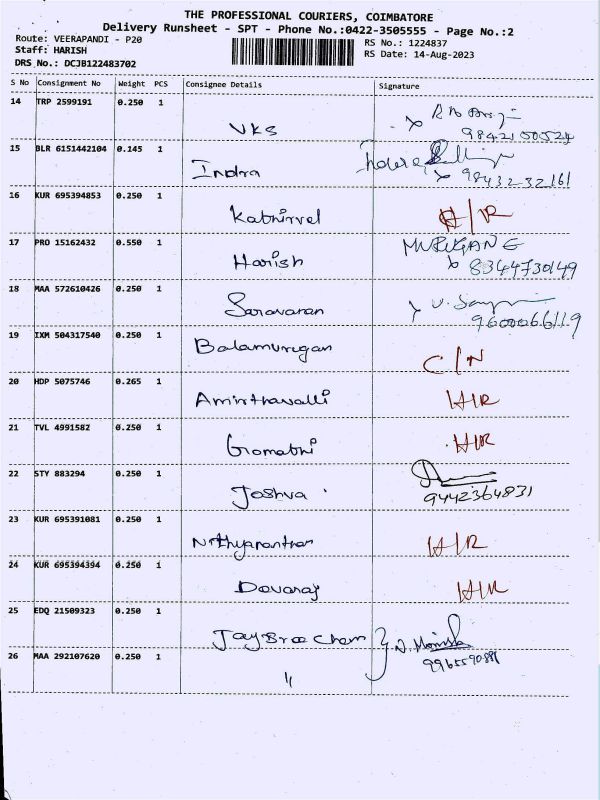 THE PROFESSIONAL COURIERS, COIMBATORE
Delivery Runsheet - SPT - Phone No.:0422-3505555 - Page No.:2
Route: VEERAPANDI - P20
RS No.: 1224837
Staff: HARISH
RS Date: 14-Aug-2023
DRS No.: DCJB122483702
S No Consignment No Weight PCS Consignee Details Signature
14 TRP 2599191 0.250 1 VKS
9842150524
15 BLR 6151442104 0.145 1 Indra
9843232161
16 KUR 695394853 0.250 1 Kathirvel H/R
17 PRO 15162432 0.550 1 Harish MURUGAN E
8344730149
18 MAA 572610426 0.250 1 Saravanan
9600066119
19 IXM 504317540 0.250 1 Balamurugan C/N
20 HDP 5075746 0.265 1 Amirthavalli H/R
21 TVL 4991582 0.250 1 Gomathi H/R
22 STY 883294 0.250 1 Joshva
9442364831
23 KUR 695391081 0.250 1 Nithyananthan H/R
24 KUR 695394394 0.250 1 Devaraj H/R
25 EDQ 21509323 0.250 1 Jay Bree Chem
26 MAA 292107620 0.250 1 "